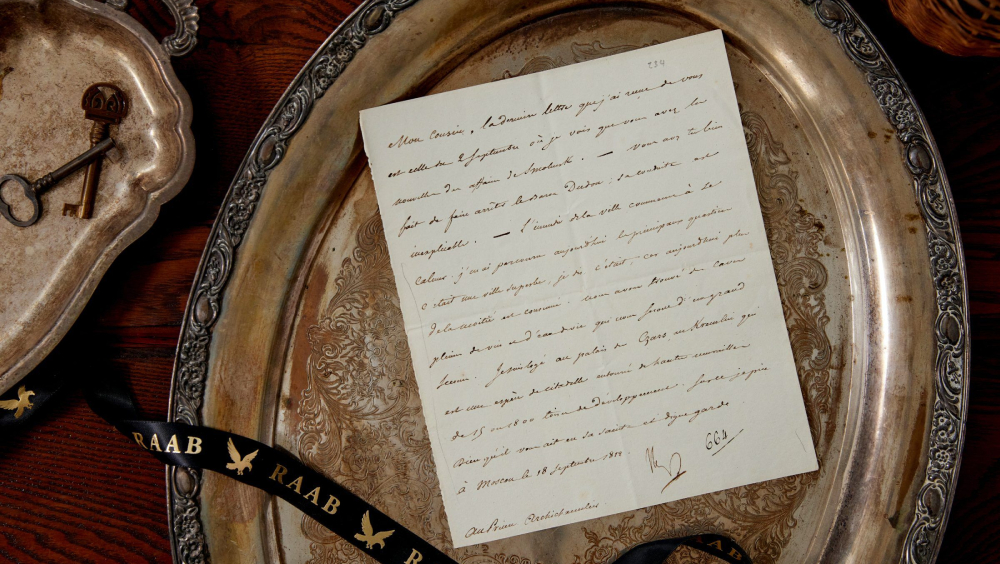 234
Mon cousin, la dernière lettre que j'ai reçue de vous
est celle du 2 Septembre où je vois que vous avez la
nouvelle des affaires de Smolensk. — Vous avez tu bien
fait de faire arrêter le Dudon : sa conduite est
inexplicable. — l'incendie de la ville commence à se
calmer. j'en ai parcouru aujourd'hui les principaux quartiers
c'était une ville superbe, je dis c'était car aujourd'hui plus
de la moitié est consumé. nous avons trouvé des caves
pleines de vin et d'eau de vie qui nous seront d'un grand
secours. Je suis logé au palais des Czars au Kremlin qui
est une espèce de citadelle entouré de hautes murailles
de 15 ou 1800 toises de développement. Sur ce je prie
Dieu qu'il vous ait en sa sainte et digne garde.
à Moscou le 18 Septembre 1812.
664
au Prince Archichancelier
RAAB
RAAB
R
RAAB